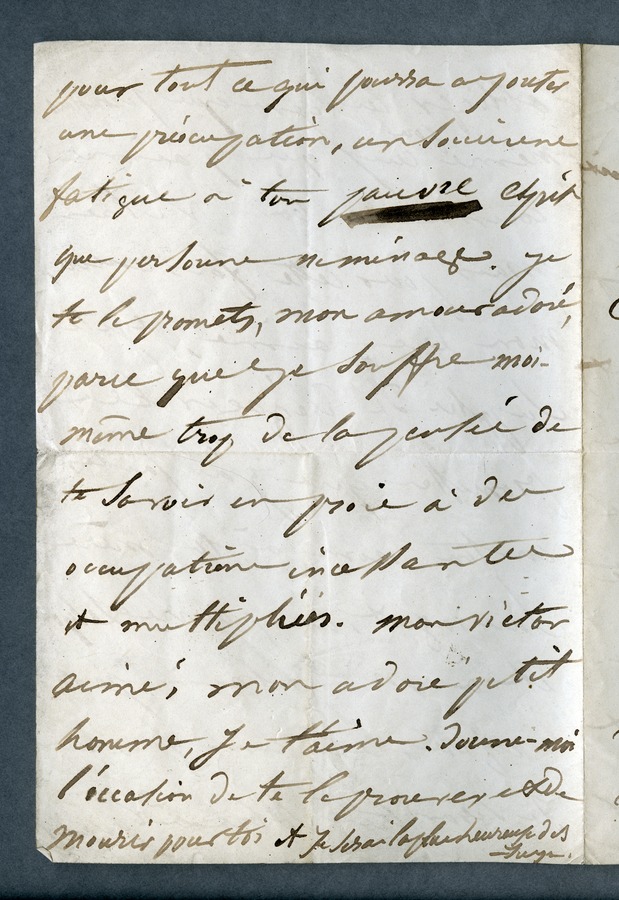 pour tout ce qui pourra ajouter
une préocupation, un souci une
fatigue à ton pauvre esprit
que personne ne ménage. Je
te le promets, mon amour adoré,
parce que je souffre moi-
même trop de la pensée de
te savoir en proie à des
occupations incessantes
et multipliées. mon Victor
aimé, mon adoré petit
homme, Je t'aime. donne-moi
l'occasion de te le prouver et de
mourir pour toi et Je serai la plus heureuse des